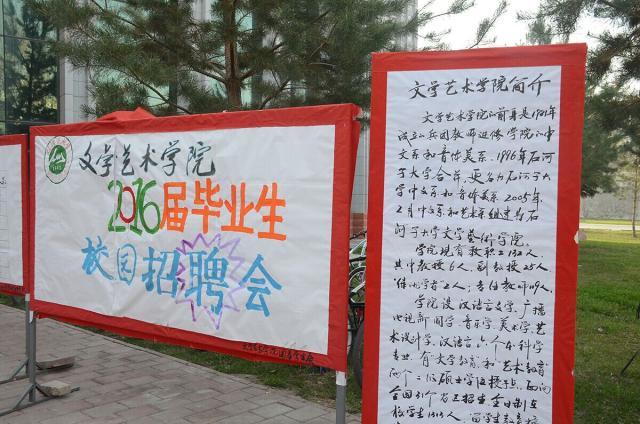 文学艺术学院
2016届毕业生
校园招聘会
文学艺术学院简介
文学艺术学院的前身是1981年
成立的兵团教师进修学院的中
文系和音体美系。1996年石河
子大学合并,更名为石河子大
学中文系和音体美系。2005年
2月中文系和艺术系组建为石
河子大学文学艺術学院。
学院现有教职工132人,
其中教授6人,副教授25人
学院设汉语言文学、广播
电视新闻学、音乐学、美术学、艺
术设计学、汉语言六个本科学
专业,有文学教育和艺术教育
两个二级硕士学位授予点。面向
全国31个省区招生,全日制在
校学生1313人,留学生